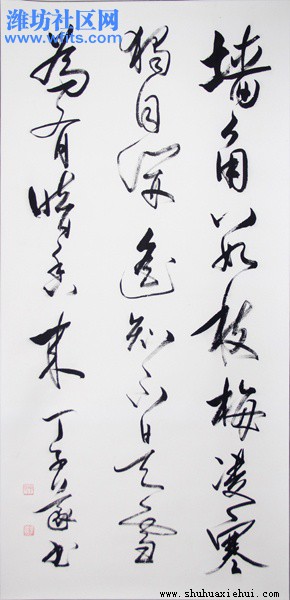 潍坊社区网
www.wfits.com
墙角数枝梅凌寒
獨自開遥知不是雪
為有暗香来 丁 书
www.shuhuaxiehui.com